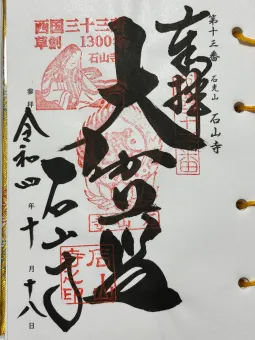 第十三番 石光山 石山寺
奉拝
西国三十三所
草創1300年
石山寺
大伽藍
石山寺
参拝
令和四年十月十八日